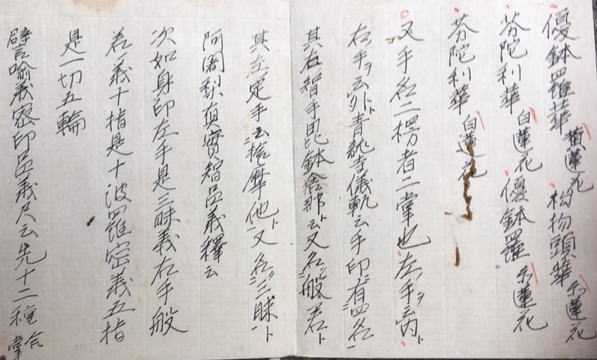 優鉢羅華 黄蓮花 拘物頭華 赤蓮花
芬陀利華 白蓮花 優鉢羅 赤蓮花
芬陀利華 白蓮花
又手名二楞者二掌也左手ヲ云内ト
右手ヲ云外ト青龍寺儀軌云手印有四名
其右智手毘鉢舍那ト云又名般若ト
其左定手ヲ云奢摩他ト又名三昧ト
阿闍梨真實智品義釋云
次如身印左手是三昧義右手般
若義十指是十波羅密義五指
是一切五輪
譬喩義密印品義尺云先十二種合掌